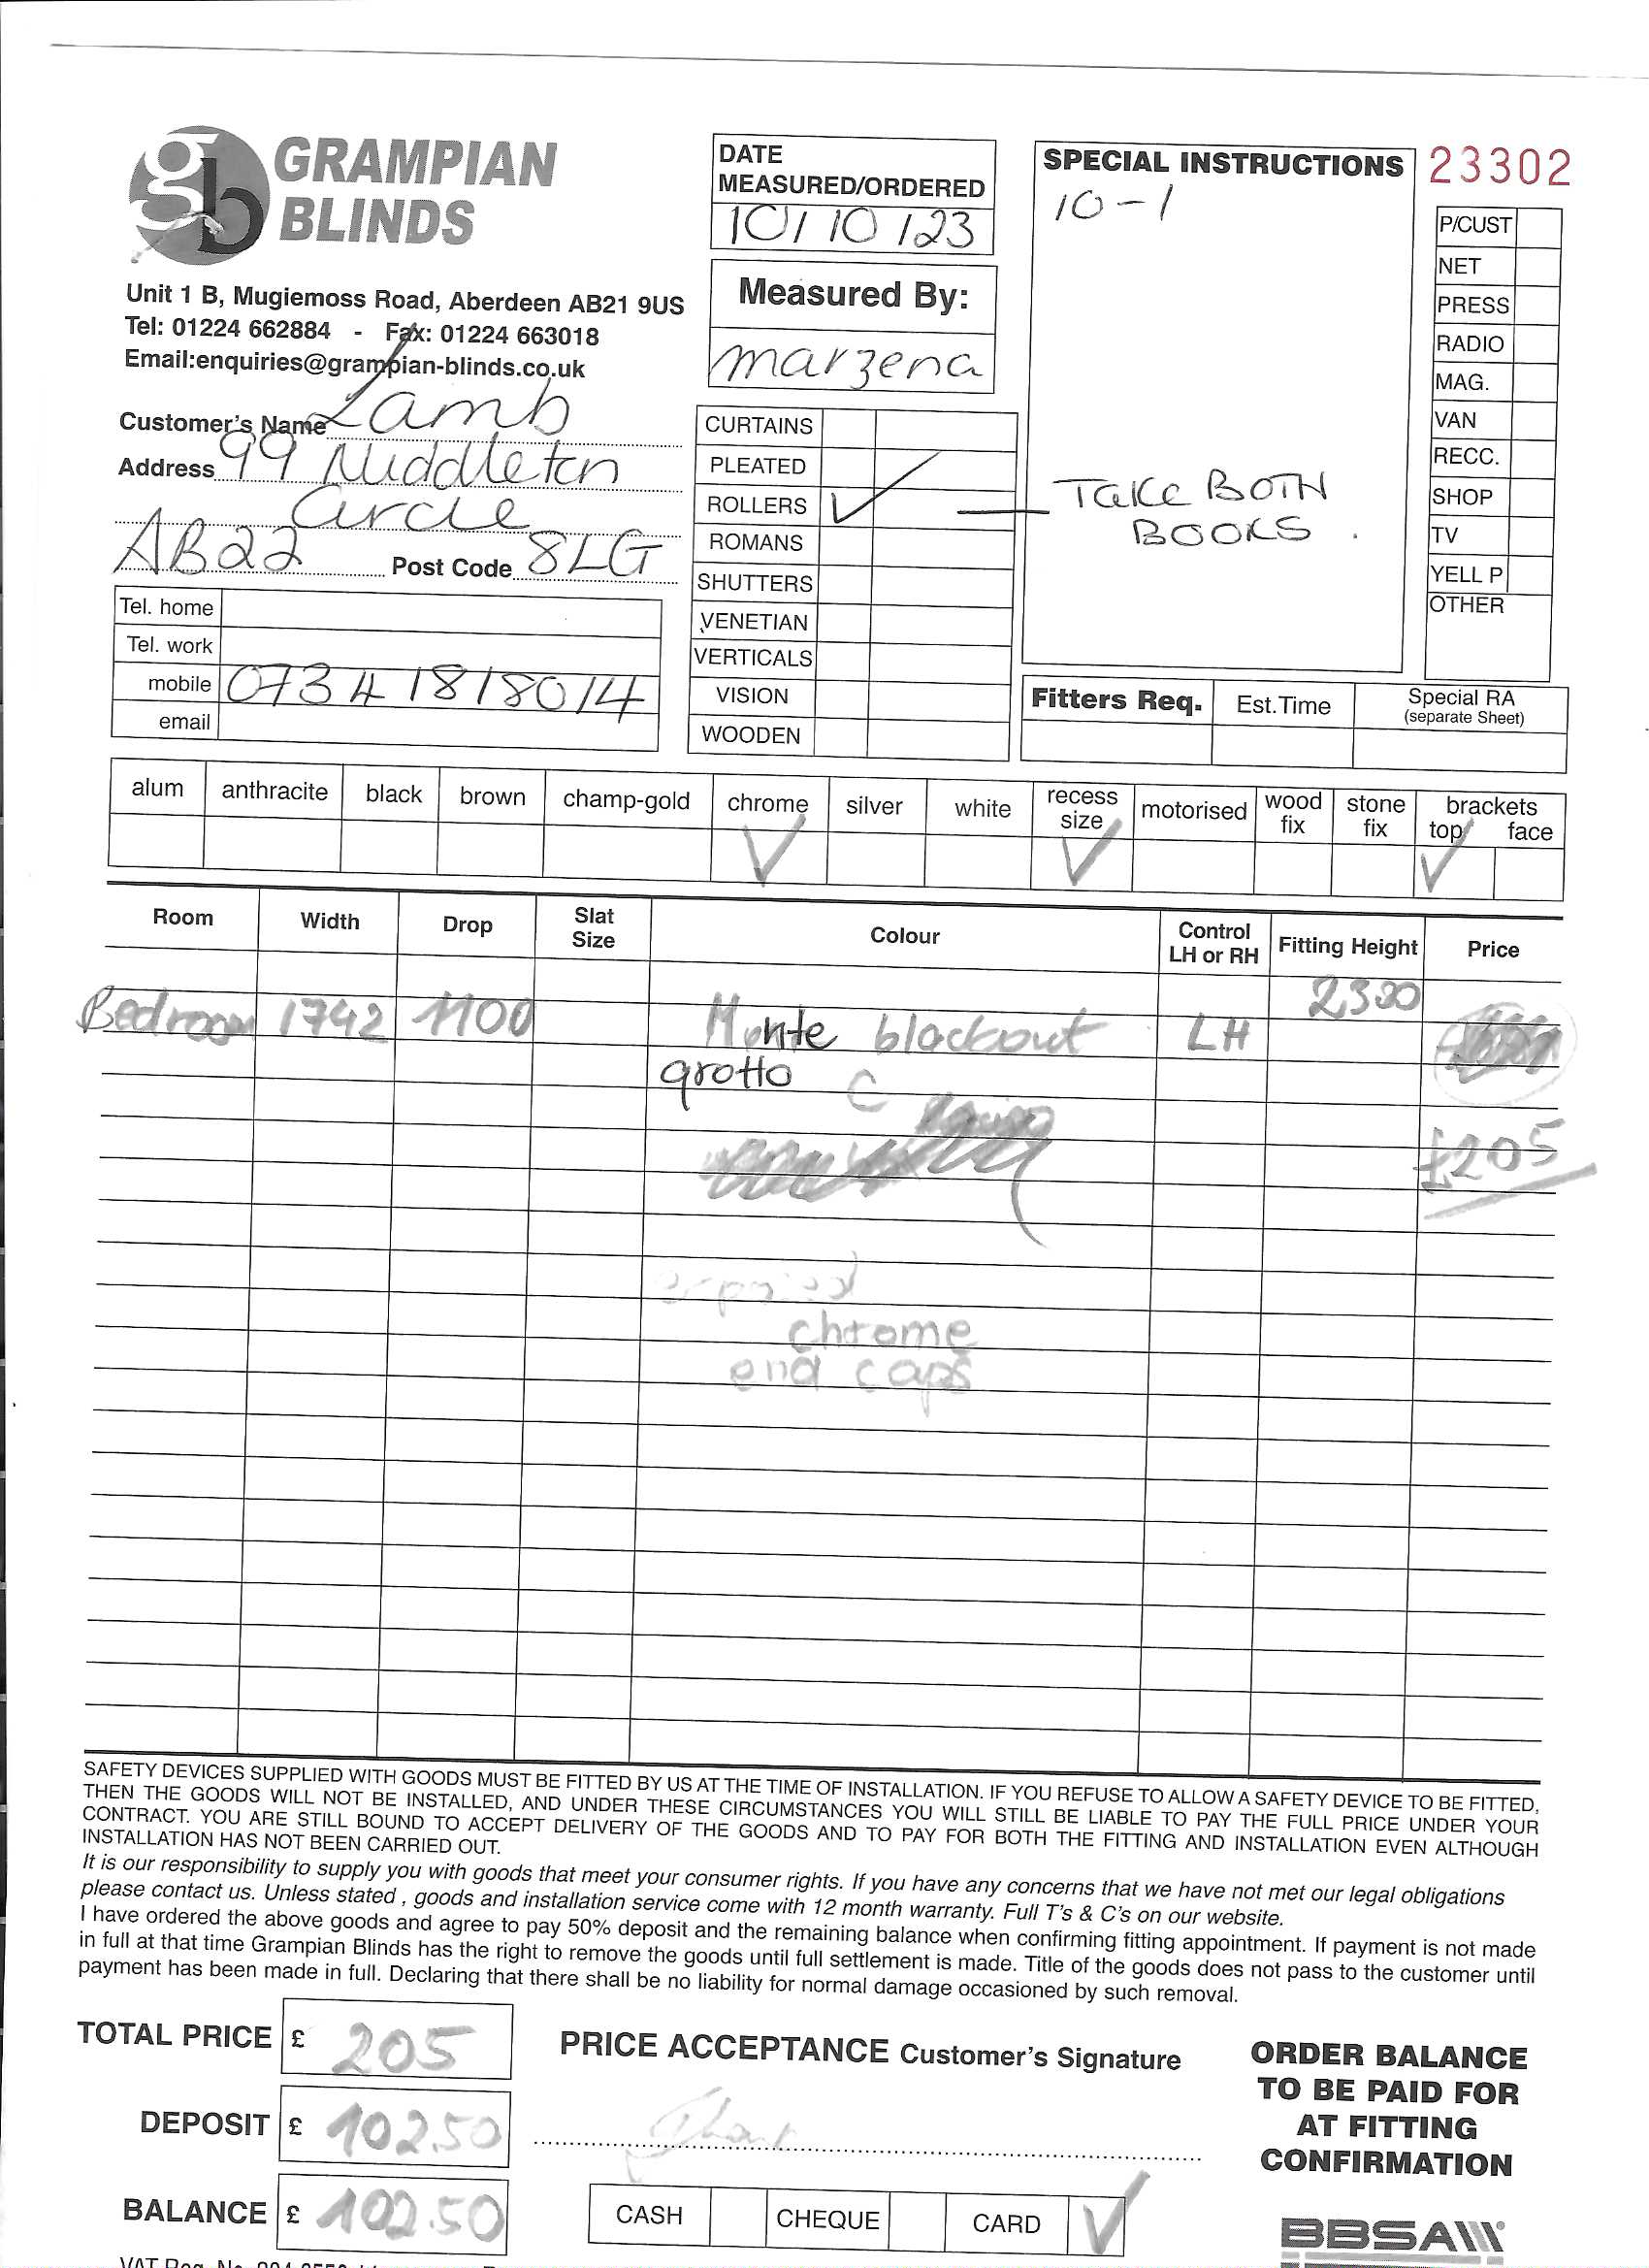 GRAMPIAN
BLINDS
Unit 1 B, Mugiemoss Road, Aberdeen AB21 9US
Tel: 01224 662884 - Fax: 01224 663018
Email:enquiries@grampian-blinds.co.uk
Customer's Name Lamb
Address 99 Middleton
Circle
AB22 Post Code 8LG
Tel. home
Tel. work
mobile 07341818014
email
DATE
MEASURED/ORDERED
10/10/23
Measured By:
marzena
CURTAINS
PLEATED
ROLLERS ✓
ROMANS
SHUTTERS
VENETIAN
VERTICALS
VISION
WOODEN
SPECIAL INSTRUCTIONS
10-1
TAKE BOTH
BOOKS.
23302
P/CUST
NET
PRESS
RADIO
MAG.
VAN
RECC.
SHOP
TV
YELL P
OTHER
Fitters Req. Est.Time Special RA
(separate Sheet)
alum anthracite black brown champ-gold chrome silver white recess size motorised wood fix stone fix brackets top face
✓ ✓ ✓
Room Width Drop Slat Size Colour Control LH or RH Fitting Height Price
2300
Bedroom 1742 1100 Monte blackout LH
grotto C
£205
chrome
end caps
SAFETY DEVICES SUPPLIED WITH GOODS MUST BE FITTED BY US AT THE TIME OF INSTALLATION. IF YOU REFUSE TO ALLOW A SAFETY DEVICE TO BE FITTED,
THEN THE GOODS WILL NOT BE INSTALLED, AND UNDER THESE CIRCUMSTANCES YOU WILL STILL BE LIABLE TO PAY THE FULL PRICE UNDER YOUR
CONTRACT. YOU ARE STILL BOUND TO ACCEPT DELIVERY OF THE GOODS AND TO PAY FOR BOTH THE FITTING AND INSTALLATION EVEN ALTHOUGH
INSTALLATION HAS NOT BEEN CARRIED OUT.
It is our responsibility to supply you with goods that meet your consumer rights. If you have any concerns that we have not met our legal obligations
please contact us. Unless stated , goods and installation service come with 12 month warranty. Full T's & C's on our website.
I have ordered the above goods and agree to pay 50% deposit and the remaining balance when confirming fitting appointment. If payment is not made
in full at that time Grampian Blinds has the right to remove the goods until full settlement is made. Title of the goods does not pass to the customer until
payment has been made in full. Declaring that there shall be no liability for normal damage occasioned by such removal.
TOTAL PRICE £ 205
DEPOSIT £ 102.50
BALANCE £ 102.50
PRICE ACCEPTANCE Customer's Signature
CASH CHEQUE CARD ✓
ORDER BALANCE
TO BE PAID FOR
AT FITTING
CONFIRMATION
BBSA